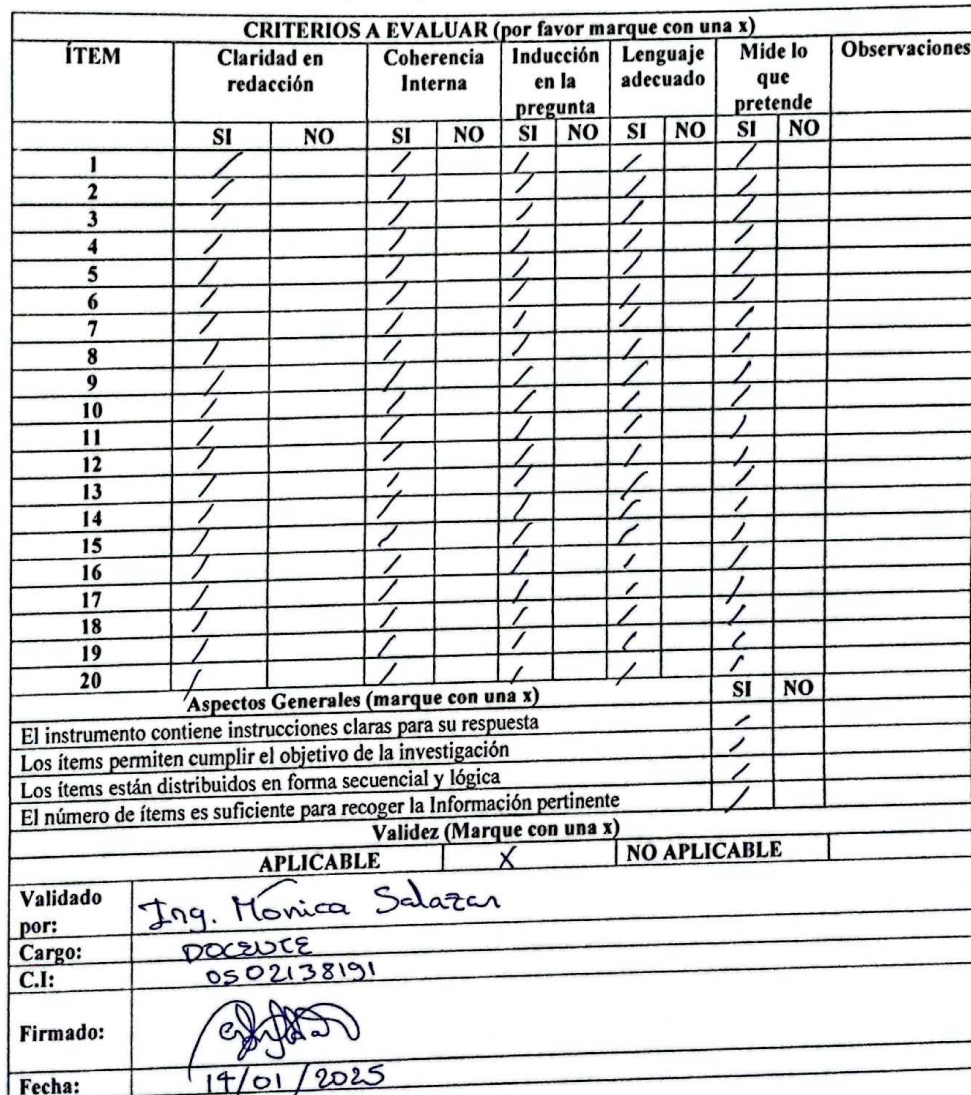 CRITERIOS A EVALUAR (por favor marque con una x)
ÍTEM Claridad en redacción Coherencia Interna Inducción en la pregunta Lenguaje adecuado Mide lo que pretende Observaciones
SI NO SI NO SI NO SI NO SI NO
1 / / / / /
2 / / / / /
3 / / / / /
4 / / / / /
5 / / / / /
6 / / / / /
7 / / / / /
8 / / / / /
9 / / / / /
10 / / / / /
11 / / / / /
12 / / / / /
13 / / / / /
14 / / / / /
15 / / / / /
16 / / / / /
17 / / / / /
18 / / / / /
19 / / / / /
20 / / / / /
Aspectos Generales (marque con una x) SI NO
El instrumento contiene instrucciones claras para su respuesta /
Los ítems permiten cumplir el objetivo de la investigación /
Los ítems están distribuidos en forma secuencial y lógica /
El número de ítems es suficiente para recoger la Información pertinente /
Validez (Marque con una x)
APLICABLE X NO APLICABLE
Validado por: Ing. Monica Salazar
Cargo: DOCENTE
C.I: 0502138191
Firmado:
Fecha: 14/01/2025